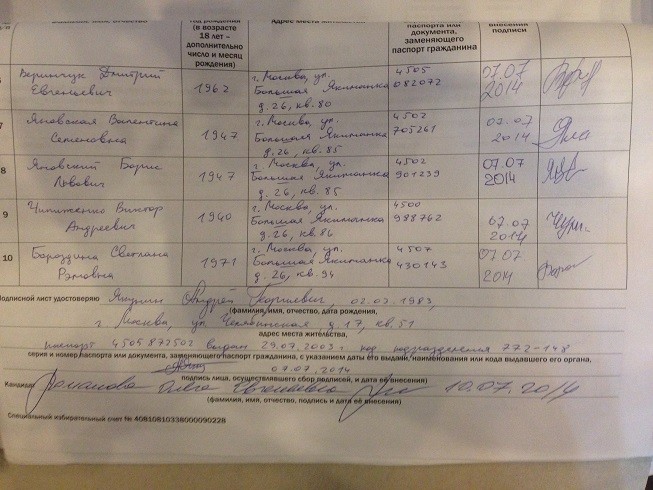 (в возрасте
18 лет –
дополнительно
число и месяц
рождения)
паспорта или
документа,
заменяющего
паспорт гражданина
внесения
подписи
Дмитрий
Евгеньевич
1962
г. Москва, ул.
Большая Якиманка
д. 26, кв. 80
4505
082072
07.07
2014
7
Яновская Валентина
Семеновна
1947
г. Москва, ул.
Большая Якиманка
д. 26, кв. 85
4502
705261
07.07
2014
8
Яновский Борис
Львович
1947
г. Москва, ул.
Большая Якиманка
д. 26, кв. 85
4502
901239
07.07
2014
9
Виктор
Андреевич
1940
г. Москва, ул.
Большая Якиманка
д. 26, кв. 86
4500
988762
07.07
2014
10
Бороздина Светлана
1971
г. Москва, ул.
Большая Якиманка
д. 26, кв. 94
4507
430143
07.07
2014
Подписной лист удостоверяю Андрей 02.02.1983,
(фамилия, имя, отчество, дата рождения,
г. Москва, ул. д. 17, кв. 51
адрес места жительства,
паспорт 4505 872502 выдан 29.07.2003 г. код подразделения 772-148
серия и номер паспорта или документа, заменяющего паспорт гражданина, с указанием даты его выдачи, наименования или кода выдавшего его органа,
07.07.2014
подпись лица, осуществлявшего сбор подписей, и дата её внесения)
Кандидат Романова Ольга Евгеньевна 10.07.2014
(фамилия, имя, отчество, подпись и дата её внесения)
Специальный избирательный счет № 40810810338000090228